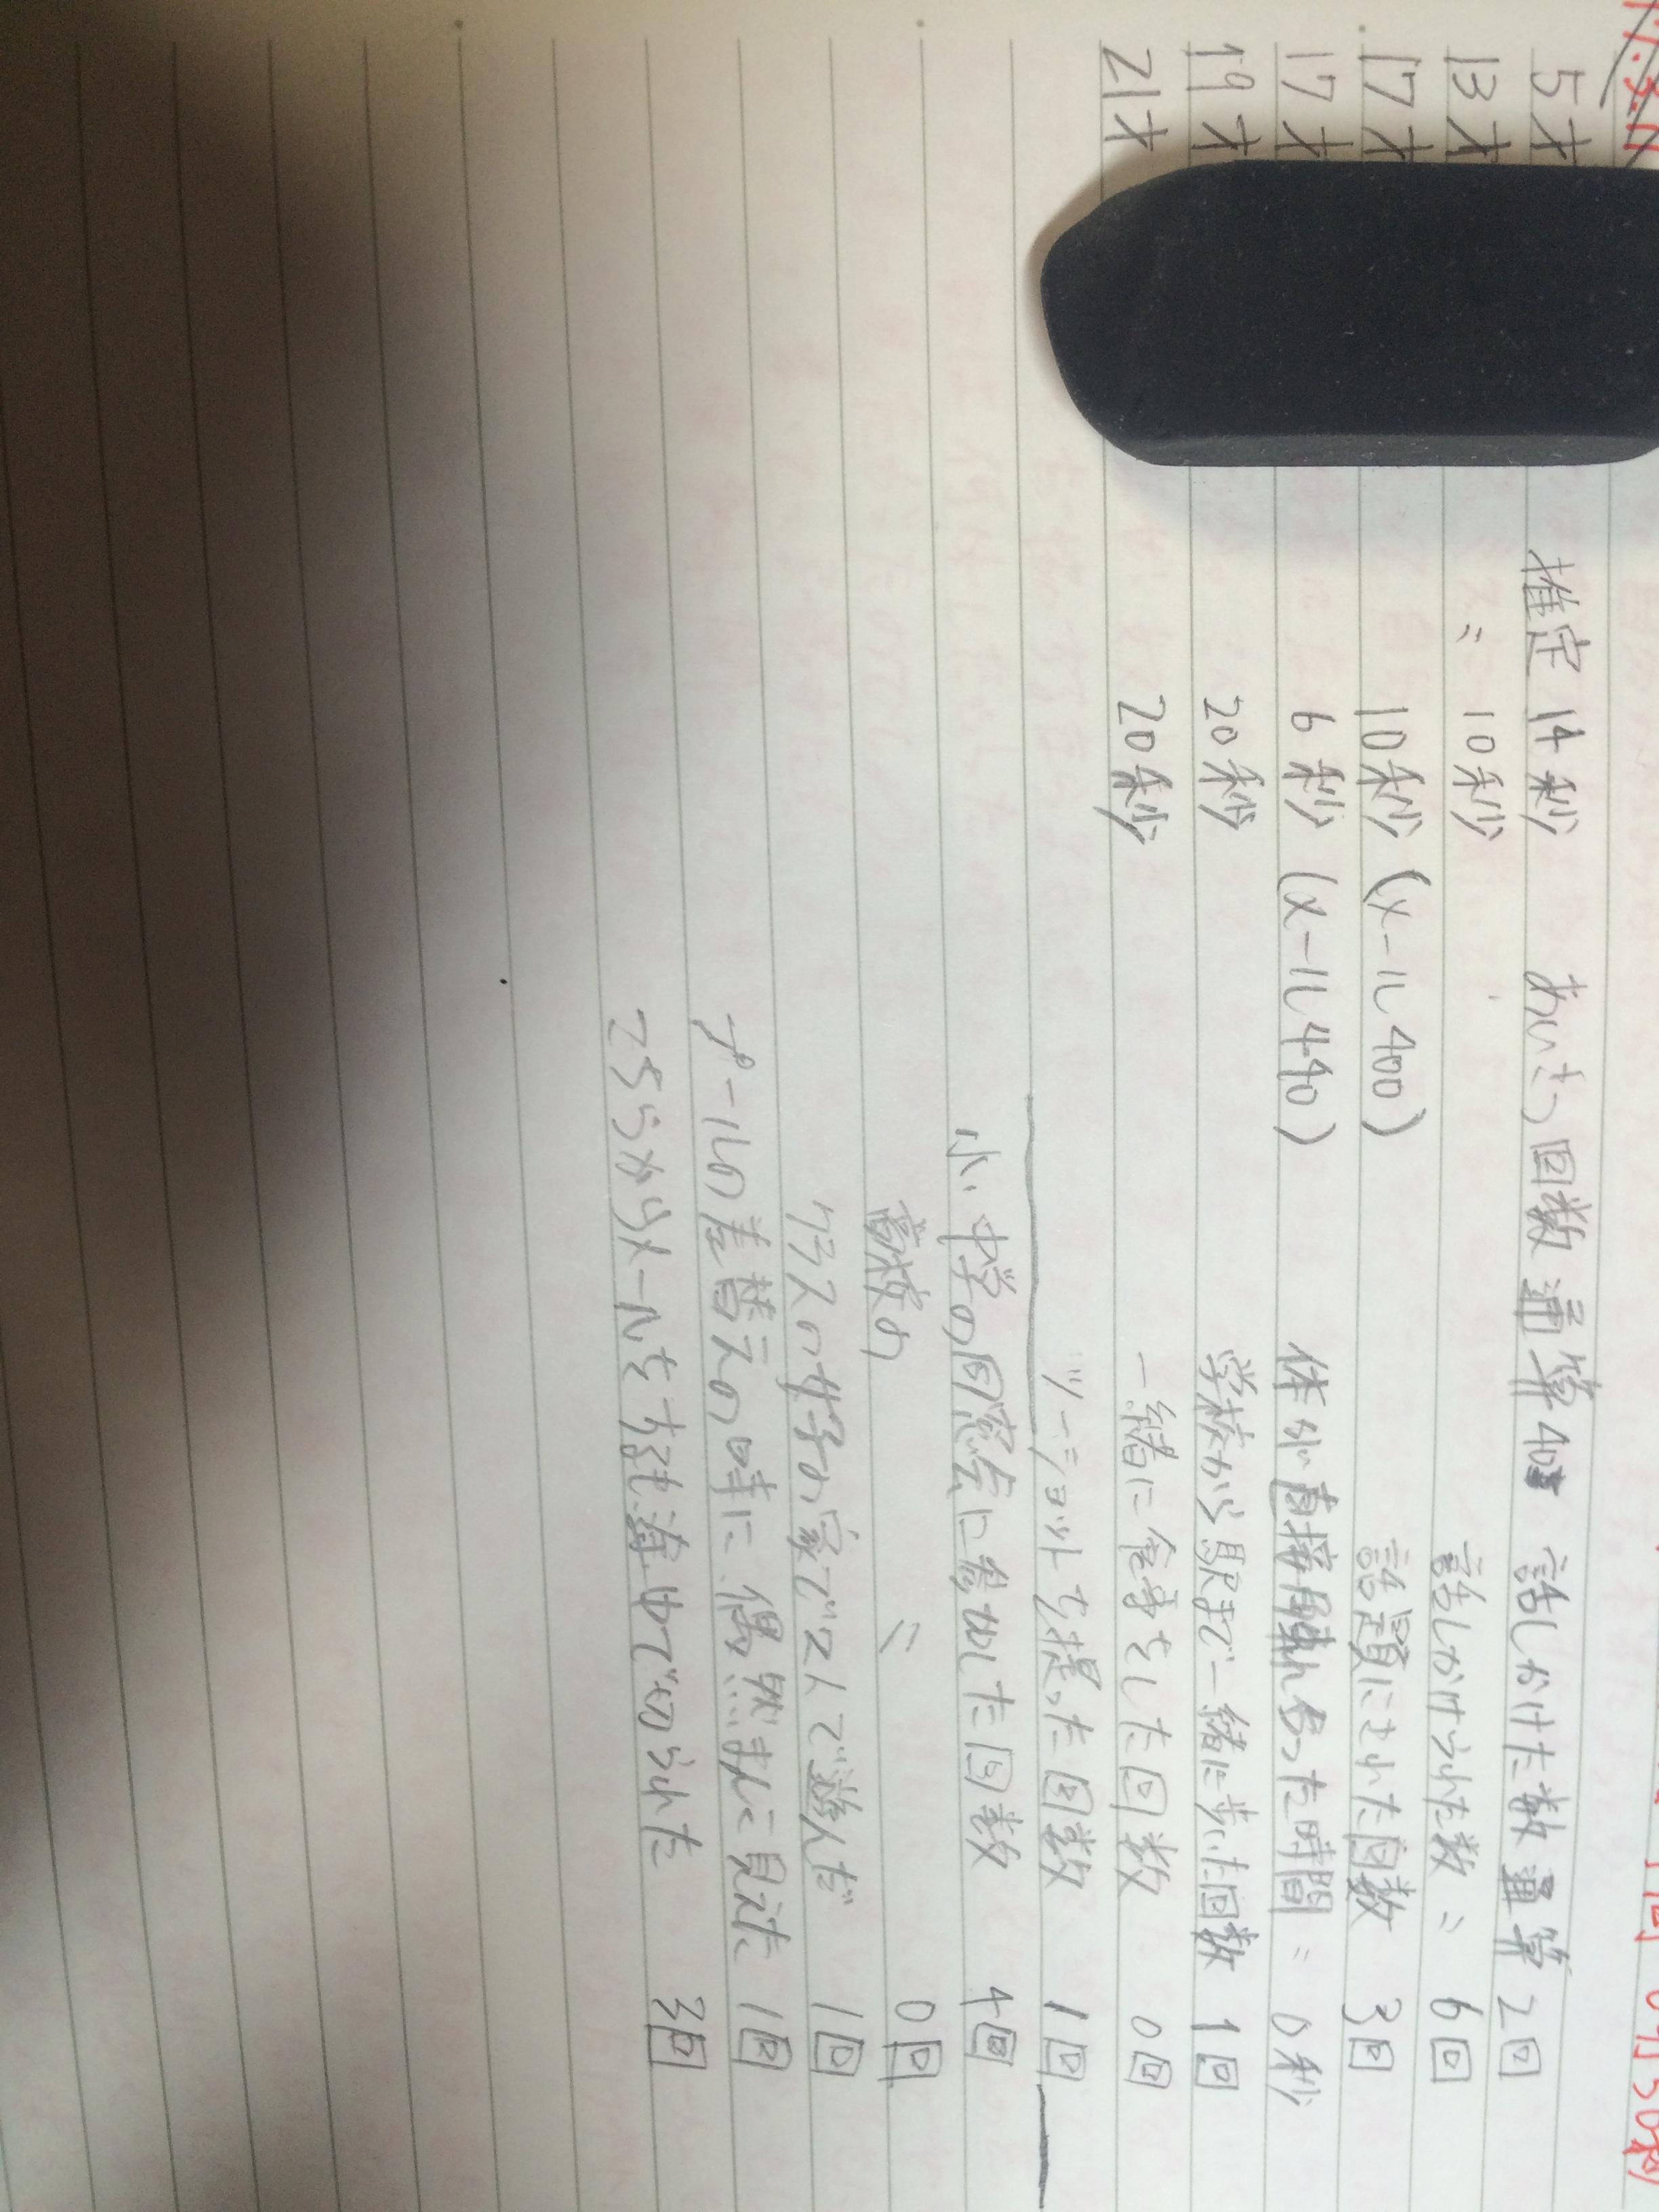 5才 推定 14秒 あいさつ回数 通算40 話しかけた数 通算 2回
13才 〃 10秒 話しかけられた数 〃 6回
17才 10秒 (メール400) 話題にされた回数 3回
17才 6秒 (メール440) 体が直接触れ合った時間 = 0秒
19才 20秒 学校から駅まで一緒に歩いた回数 1回
21才 20秒 一緒に食事をした回数 0回
ツーショットを撮った回数 1回
小、中学の同窓会に参加した回数 4回
高校の 〃 0回
クラスの女子の家で2人で遊んだ 1回
プールの着替えの時に偶然まんこ見えた 1回
こちらからメールを送 途中で切られた 3回